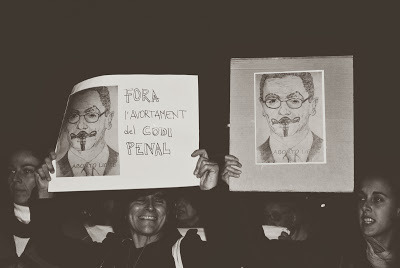 FORA
L'AVORTAMENT
del CODI
PENAL